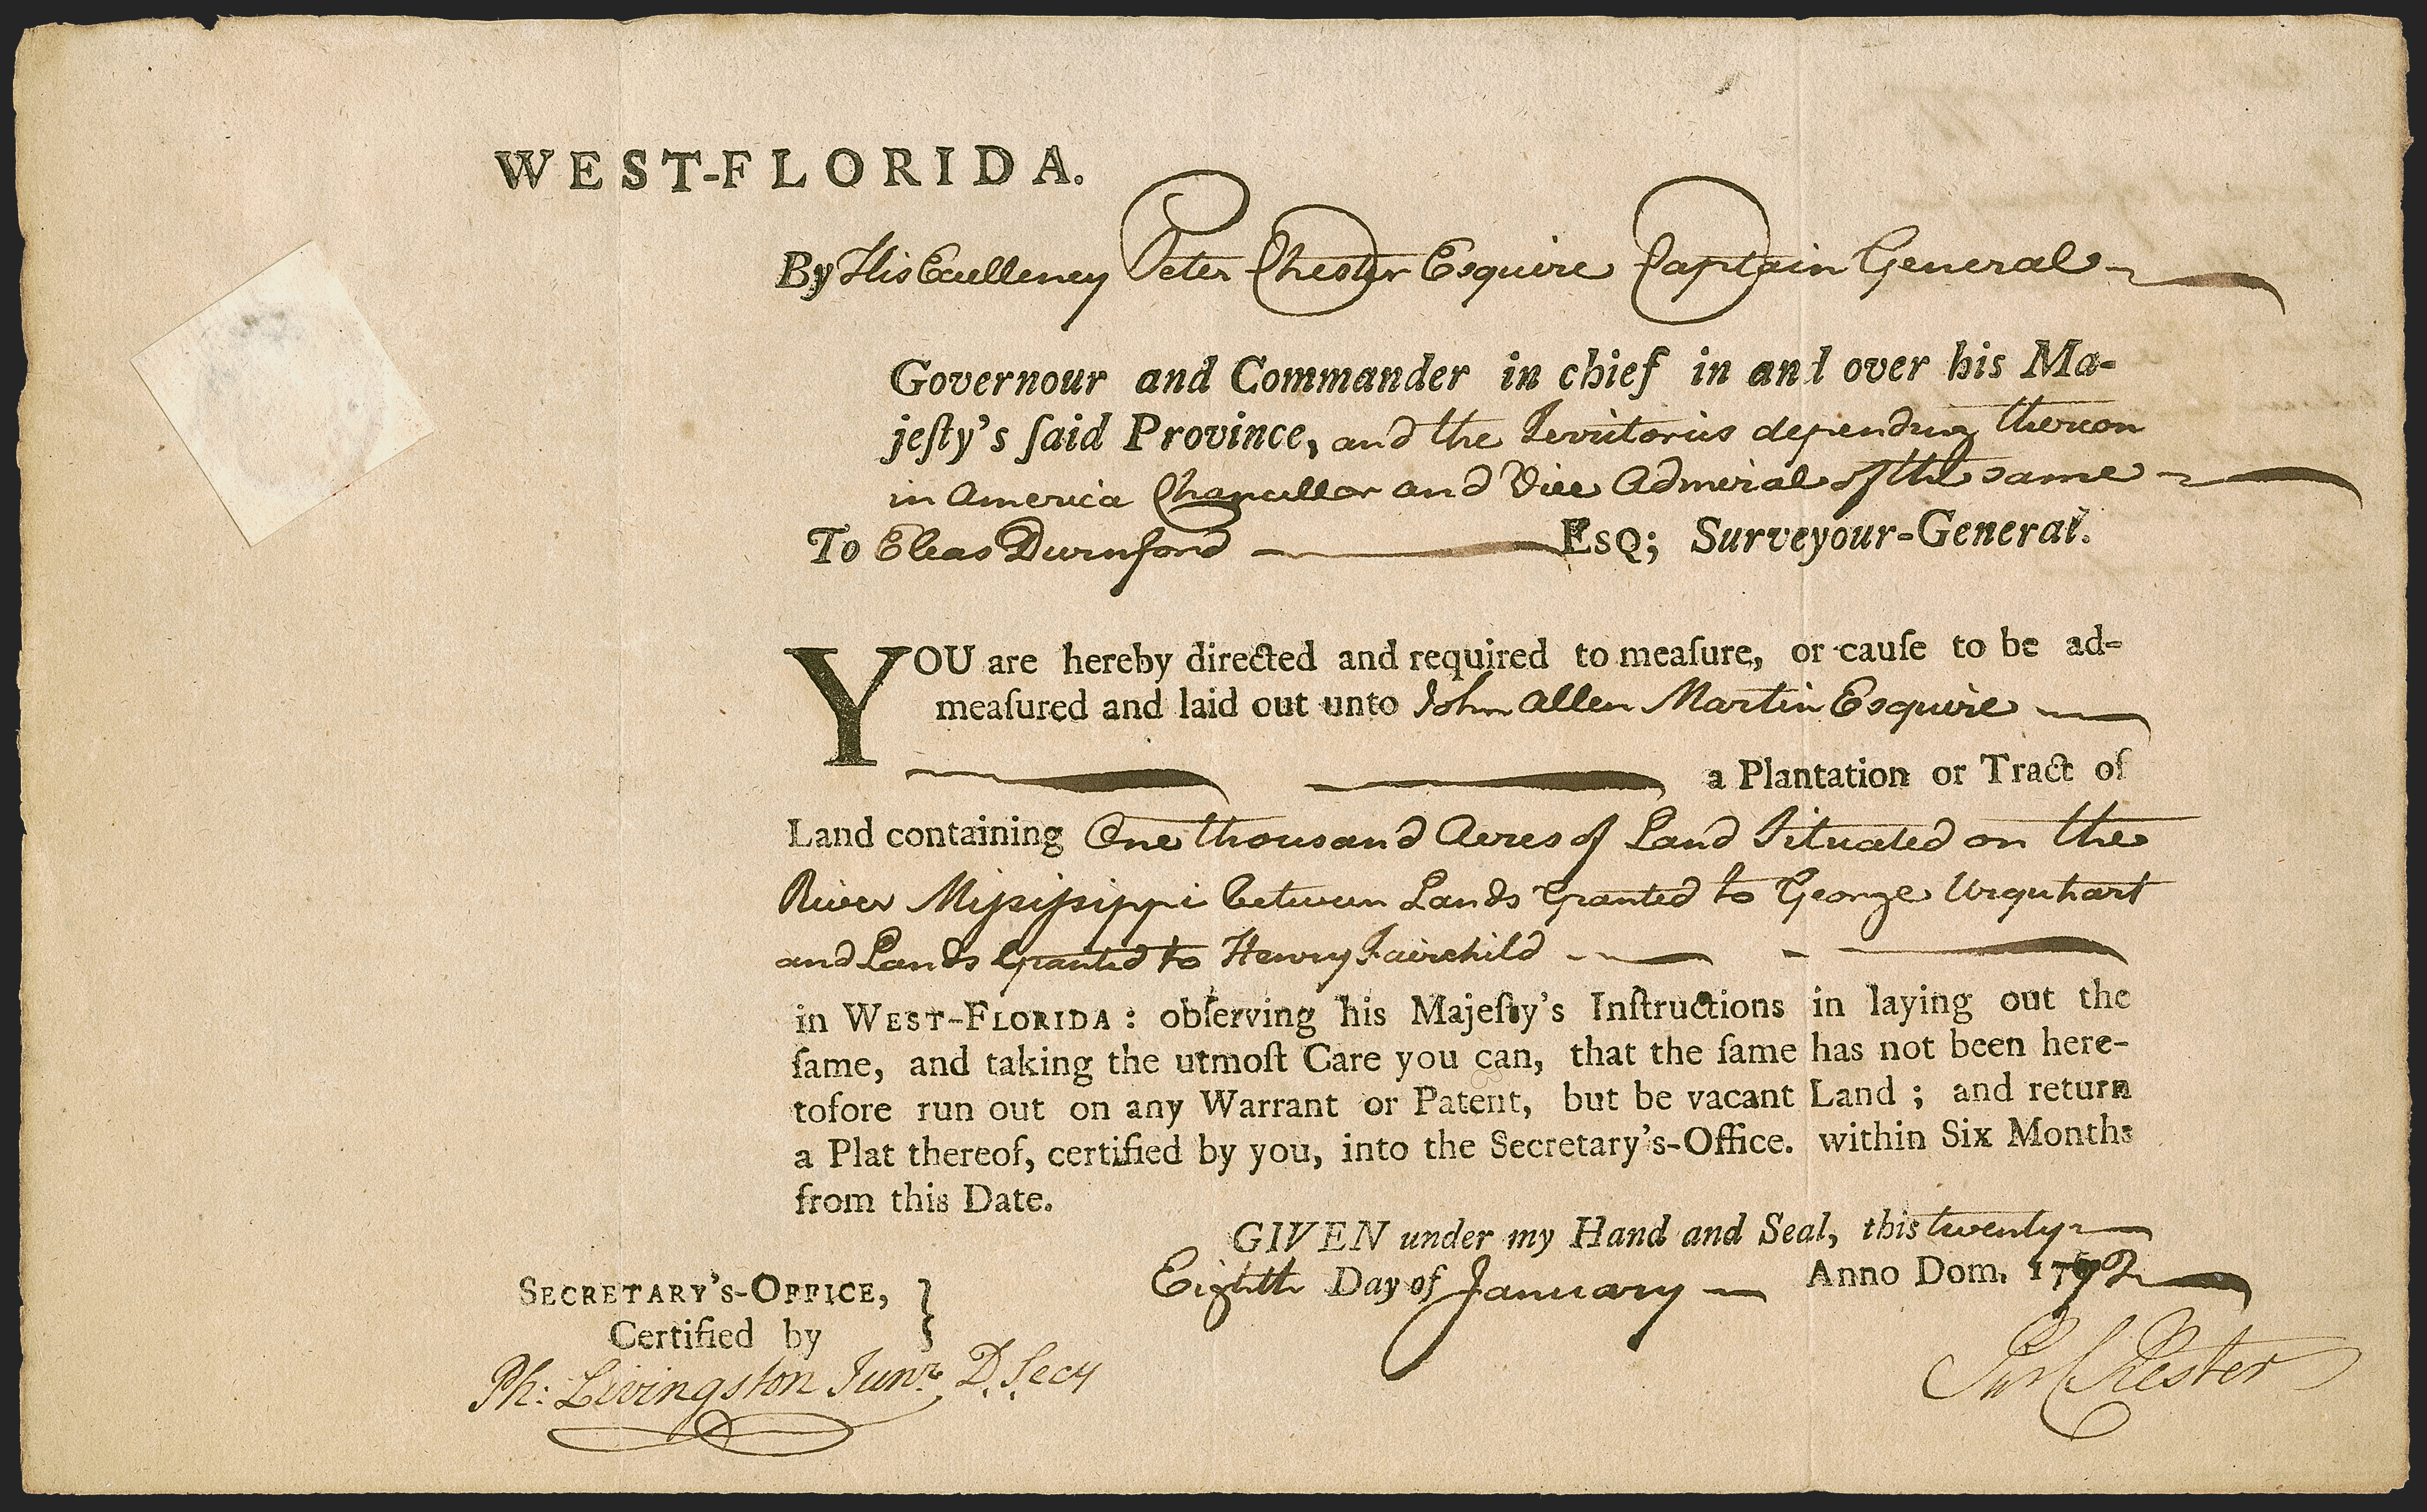 WEST-FLORIDA.
By His Excellency Peter Chester Esquire Captain General
Governour and Commander in chief in and over his Ma-
jeſty's ſaid Province, and the Territories depending thereon
in America Chancellor and Vice Admiral of the same
To Elias Durnford ESQ; Surveyour-General.
YOU are hereby directed and required to meaſure, or cauſe to be ad-
meaſured and laid out unto John Allen Martin Esquire
a Plantation or Tract of
Land containing One thousand Acres of Land Situated on the
River Mississippi between Lands Granted to George Urquhart
and Lands Granted to Henry Fairchild
in WEST-FLORIDA: obſerving his Majeſty's Inſtructions in laying out the
ſame, and taking the utmoſt Care you can, that the ſame has not been here-
tofore run out on any Warrant or Patent, but be vacant Land; and return
a Plat thereof, certified by you, into the Secretary's-Office. within Six Months
from this Date.
GIVEN under my Hand and Seal, this twenty
Eighth Day of January Anno Dom. 1772
SECRETARY'S-OFFICE,
Certified by
Ph: Livingston Junr. D. Secy
Chester